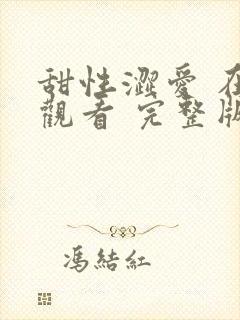 甜性澀愛 在
觀看 完整版
馮結紅